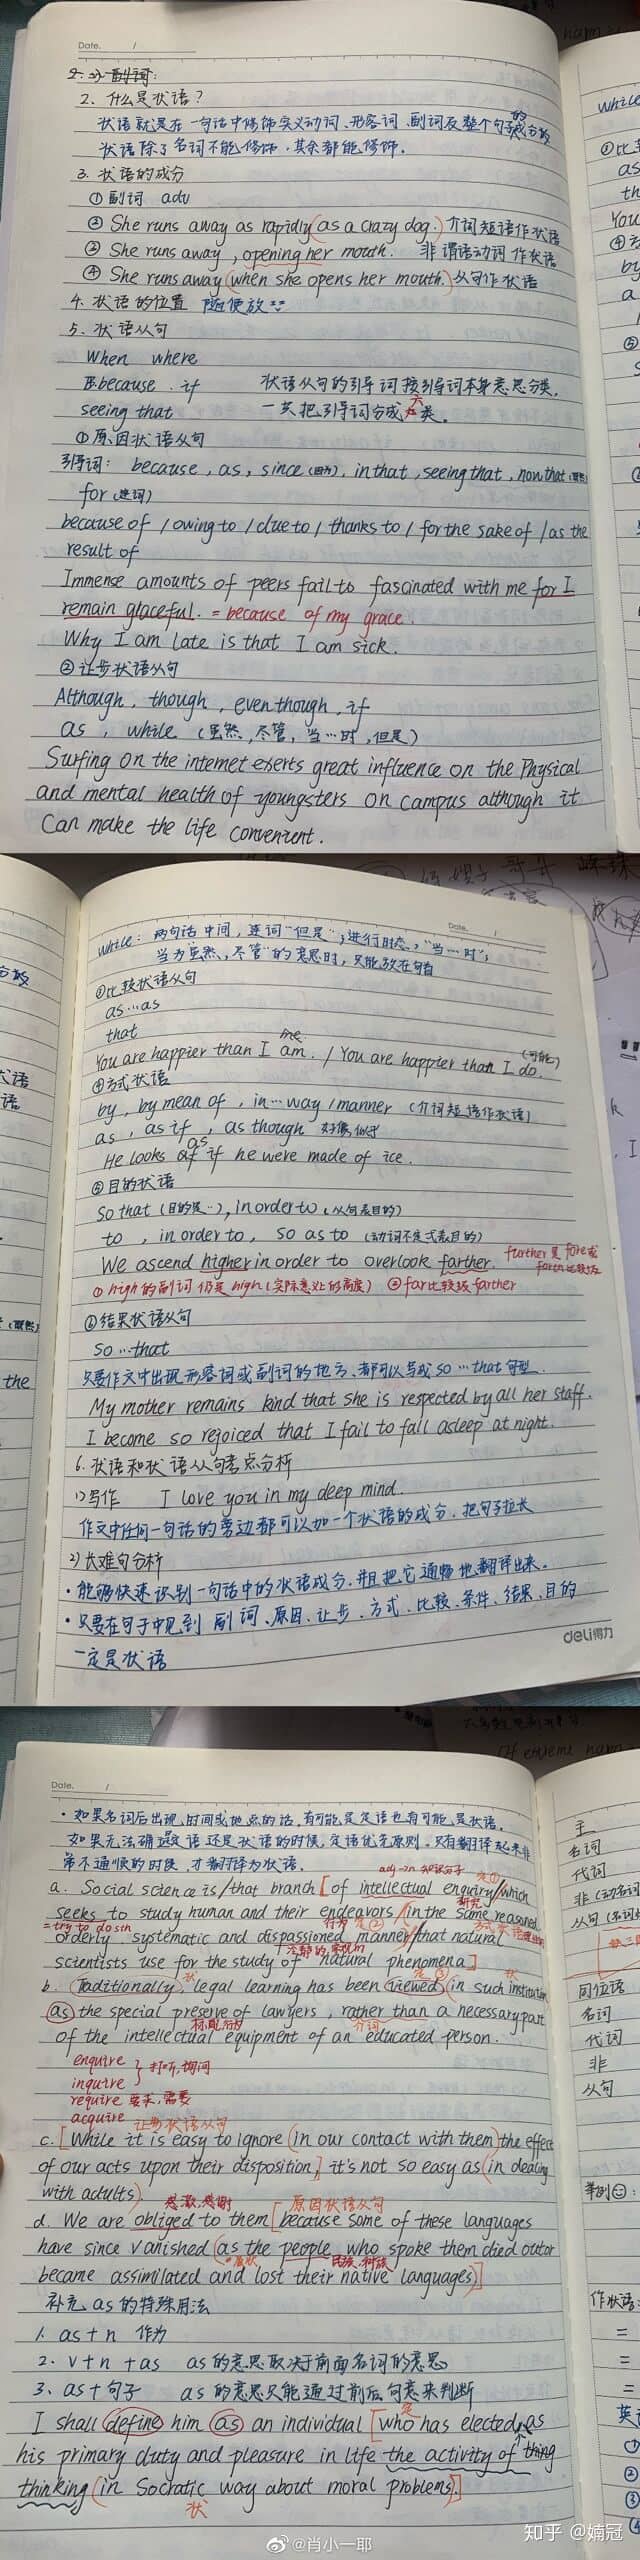 Date. /
2. 什么是状语？
状语就是在一句话中修饰实义动词、形容词、副词及整个句子的成分
状语除了名词不能修饰，其余都能修饰.
3. 状语的成分
①副词 adv
② She runs away as rapidly (as a crazy dog.) 介词短语作状语
③ She runs away, opening her mouth. 非谓语动词作状语
④ She runs away (when she opens her mouth.) 从句作状语
4. 状语的位置 随便放
5. 状语从句
When where
because . if 状语从句的引导词按引导词本身意思分类,
seeing that 一共把引导词分成六类.
①原因状语从句
引导词: because, as, since (因为), in that, seeing that, now that (既然)
for (连词)
because of / owing to / due to / thanks to / for the sake of / as the
result of
Immense amounts of peers fail to fascinated with me for I
remain glaceful. = because of my grace.
Why I am late is that I am sick.
②让步状语从句
Although, though, even though, if
as, while (虽然, 尽管, 当…时, 但是)
Surfing on the internet exerts great influence on the Physical
and mental health of youngsters on campus although it
Can make the life convenient.
Date. /
while: 两句话中间, 连词"但是"; 进行时态, "当…时";
当为虽然, 尽管"的意思时, 只能放在句首
③比较状语从句
as…as
that
me
You are happier than I am. / You are happier than I do. (可能)
④方式状语
by, by mean of, in…way / manner (介词短语作状语)
as, as if, as though 好像似乎
as
He looks as if he were made of ice.
⑤目的状语
so that (目的是…), in order to (从句表目的)
to, in order to, so as to (动词不定式表目的)
We ascend higher in order to overlook farther. further是fore或forth比较级
①high的副词仍是high (实际意义上的高度) ②far比较级farther
⑥结果状语从句
so…that
只要作文中出现形容词或副词的地方、都可以写成so…that句型.
My mother remains kind that she is respected by all her staff.
I become so rejoiced that I fail to fall asleep at night.
6. 状语和状语从句考点分析
1) 写作 I love you in my deep mind.
作文中任何一句话的旁边都可以加一个状语的成分. 把句子拉长
2) 长难句分析
· 能够快速识别一句话中的状语成分. 并且把它通畅地翻译出来.
· 只要在句子中见到 副词、原因、让步、方式、比较、条件、结果、目的
一定是状语
deli得力
Date. /
· 如果名词后出现时间或地点的话, 有可能是定语也有可能是状语.
如果无法确定是定语还是状语的时候, 定语优先原则. 只有翻译起来非
常不通顺的时候, 才翻译为状语.
adj→n 知识分子 定①
a. Social science is / that branch [of intellectual enquiry / which
研究
seeks to study human and their endeavors / in the same reasoned
=try to do sth 行为 定②
orderly systematic and dispassioned manner / that natural
冷静的
scientists use for the study of natural phenomena.]
状 定③ 状
b. (Traditionally), legal learning has been (viewed) (in such institution
(as) the special preserve of lawyers, rather than a necessary part
介词
of the intellectual equipment of an educated person.
enquire
inquire } 打听, 询问
require 要求, 需要
acquire
让步状语从句
c. [While it is easy to ignore (in our contact with them) the effect
of our acts upon their disposition,] it's not so easy as (in dealing
with adults).
感激, 感谢 原因状语从句
d. We are obliged to them [because some of these languages
have since vanished (as the people who spoke them died out or
民族、种族
became assimilated and lost their native languages)]
补充 as的特殊用法
1. as + n 作为
2. v + n + as as的意思取决于前面名词的意思
3. as + 句子 as 的意思只能通过前后句意来判断
定
I shall (define) him (as) an individual [who has elected as
his primary duty and pleasure in life the activity of thing
thinking (in Socratic way about moral problems).]
状
while
You
主
名词
代词
同位语
名词
代词
非
从句
举例
作状语:
知乎 @婻冠
@肖小一耶